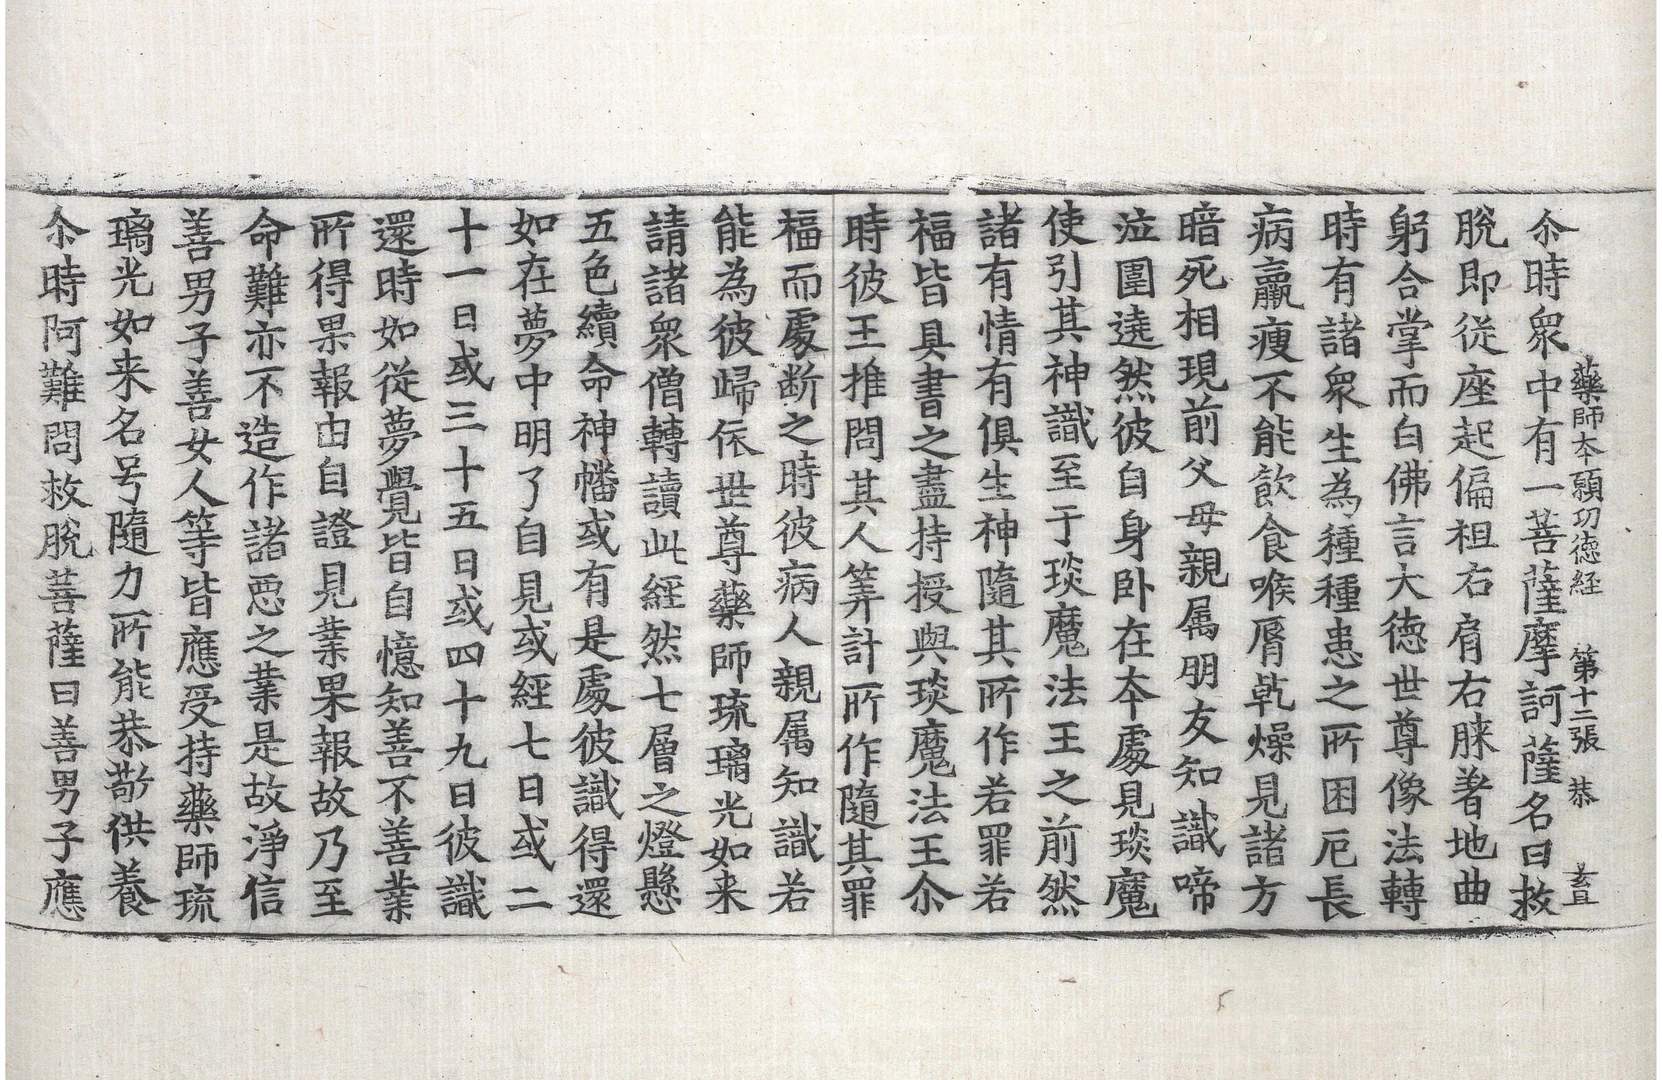 藥師本願功德経 第十二張 恭
尒時衆中有一菩薩摩訶薩名曰救
脫即從座起偏袒右肩右膝著地曲
躬合掌而白佛言大德世尊像法轉
時有諸衆生為種種患之所困厄長
病羸瘦不能飮食喉脣乾燥見諸方
暗死相現前父母親属朋友知識啼
泣圍遶然彼自身卧在本處見琰魔
使引其神識至于琰魔法王之前然
諸有情有俱生神隨其所作若罪若
福皆具書之盡持授與琰魔法王尒
時彼王推問其人筭計所作隨其罪
福而處断之時彼病人親属知識若
能為彼歸依世尊藥師琉璃光如来
請諸衆僧轉讀此經然七層之燈懸
五色續命神幡或有是處彼識得還
如在夢中明了自見或經七日或二
十一日或三十五日或四十九日彼識
還時如從夢覺皆自憶知善不善業
所得果報由自證見業果報故乃至
命難亦不造作諸惡之業是故淨信
善男子善女人等皆應受持藥師琉
璃光如来名号隨力所能恭敬供養
尒時阿難問救脫菩薩曰善男子應